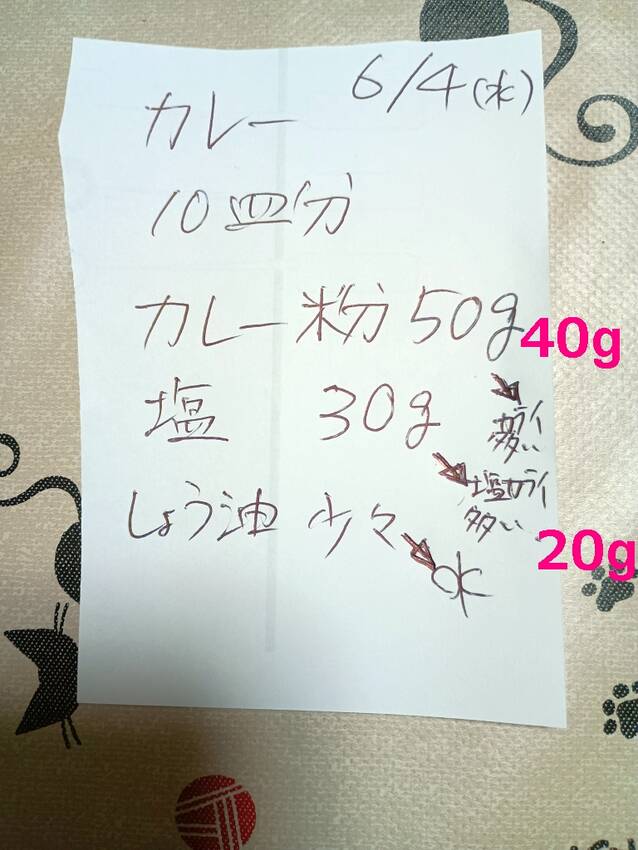 6/4(水)
カレー
10皿分
カレー粉 50g
40g
塩 30g
多い
しょう油 少々
塩カライ
多い
20g
水